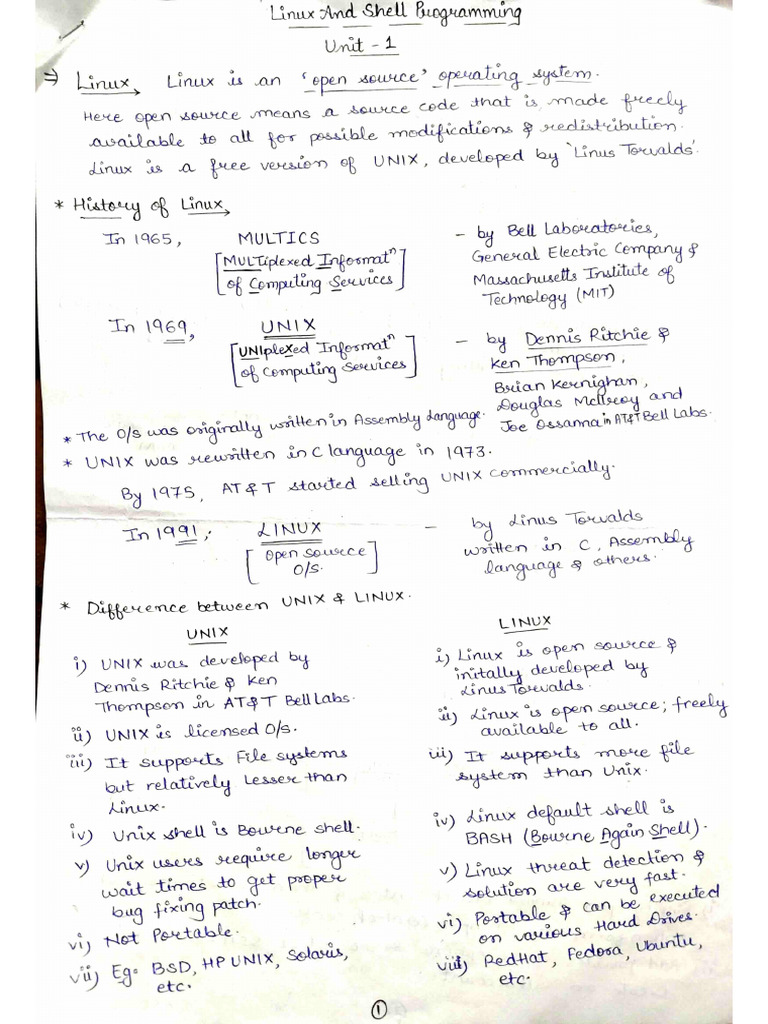 Linux And Shell Programming
Unit - 1
⇒ Linux → Linux is an 'open source' operating system.
Here open source means a source code that is made freely
available to all for possible modifications & redistribution.
Linux is a free version of UNIX, developed by 'Linus Torvalds'.
* History of Linux →
In 1965, MULTICS - by Bell Laboratories,
[MULTiplexed Informatⁿ General Electric Company &
of Computing Services] Massachusetts Institute of
Technology (MIT)
In 1969, UNIX - by Dennis Ritchie &
[UNIplexed Informatⁿ Ken Thompson,
of Computing Services] Brian Kernighan,
Douglas McIlroy and
* The O/S was originally written in Assembly Language. Joe Ossanna in AT&T Bell Labs.
* UNIX was rewritten in C language in 1973.
By 1975, AT&T started selling UNIX commercially.
In 1991, LINUX - by Linus Torvalds
[Open source written in C, Assembly
O/S.] language & others.
* Difference between UNIX & LINUX.
UNIX
i) UNIX was developed by
Dennis Ritchie & Ken
Thompson in AT&T Bell Labs.
ii) UNIX is licensed O/S.
iii) It supports File systems
but relatively Lesser than
Linux.
iv) Unix shell is Bourne shell.
v) Unix users require longer
wait times to get proper
bug fixing patch.
vi) Not Portable.
vii) Eg: BSD, HP UNIX, Solaris,
etc.
LINUX
i) Linux is open source &
initally developed by
Linus Torvalds.
ii) Linux is open source; freely
available to all.
iii) It supports more file
system than Unix.
iv) Linux default shell is
BASH (Bourne Again Shell).
v) Linux threat detection &
solution are very fast.
vi) Portable & can be executed
on various Hard Drives.
vii) RedHat, Fedora, Ubuntu,
etc.
1